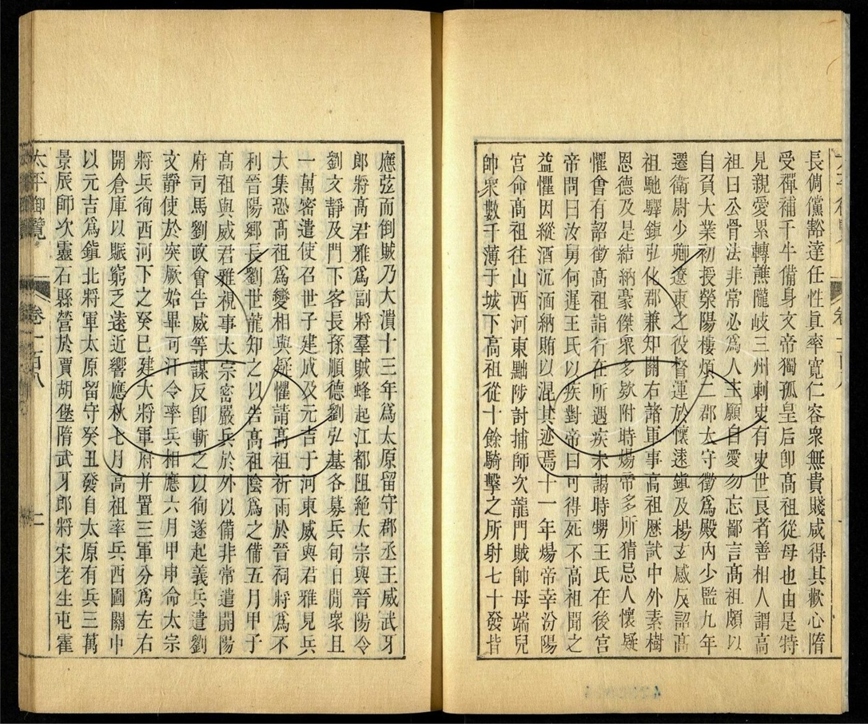 長倜儻豁達任性真率寬仁容衆無貴賤咸得其歡心隋
受禪補千牛備身文帝獨孤皇后卽高祖從母也由是特
見親愛累轉譙隴岐三州刺史有史世良者善相人謂高
祖曰公骨法非常必爲人主願自愛勿忘鄙言高祖頗以
自負大業初授滎陽樓煩二郡太守徵爲殿內少監九年
遷衛尉少卿遼東之役督運於懷遠鎮及楊玄感反詔高
祖馳驛鎮弘化郡兼知關右諸軍事高祖歷試中外素樹
恩德及是結納豪傑衆多欵附時煬帝多所猜忌人懷疑
懼會有詔徵高祖詣行在所遇疾未謁時甥王氏在後宮
帝問曰汝舅何遲王氏以疾對帝曰可得死不高祖聞之
益懼因縱酒沉湎納賄以混其迹焉十一年煬帝幸汾陽
宮命高祖往山西河東黜陟討捕師次龍門賊帥母端兒
帥衆數千薄于城下高祖從十餘騎擊之所射七十發皆
應弦而倒賊乃大潰十三年爲太原留守郡丞王威武牙
郎將高君雅爲副將羣賊蜂起江都阻絕太宗與晉陽令
劉文靜及門下客長孫順德劉弘基各募兵旬日間衆且
一萬密遣使召世子建成及元吉于河東威與君雅見兵
大集恐高祖爲變相與疑懼請高祖祈雨於晉祠將爲不
利晉陽鄉長劉世龍知之以告高祖陰爲之備五月甲子
高祖與威君雅視事太宗密嚴兵於外以備非常遣開陽
府司馬劉政會告威等謀反卽斬之以徇遂起義兵遣劉
文靜使於突厥始畢可汗令率兵相應六月甲申命太宗
將兵徇西河下之癸巳建大將軍府并置三軍分爲左右
開倉庫以賑窮乏遠近響應秋七月高祖率兵西圖關中
以元吉爲鎮北將軍太原留守癸丑發自太原有兵三萬
景辰師次靈石縣營於賈胡堡隋武牙郎將宋老生屯霍
太平御覽 卷一百八 二